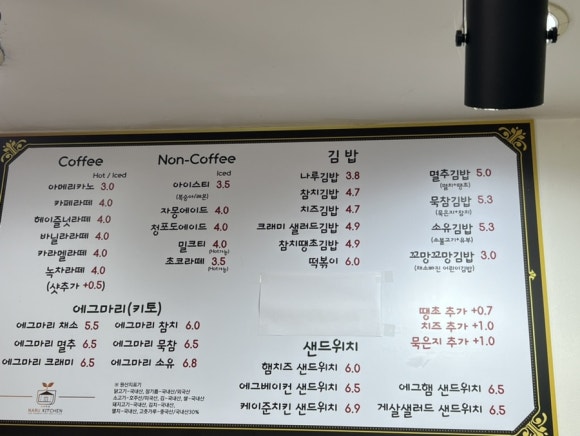 Coffee
Hot / Iced
아메리카노 3.0
카페라떼 4.0
헤이즐넛라떼 4.0
바닐라라떼 4.0
카라멜라떼 4.0
녹차라떼 4.0
(샷추가 +0.5)
Non-Coffee
Iced
아이스티 3.5
(복숭아/레몬)
자몽에이드 4.0
청포도에이드 4.0
밀크티 4.0
(Hot가능)
초코라떼 3.5
(Hot가능)
김밥
나루김밥 3.8
참치김밥 4.7
치즈김밥 4.7
크래미 샐러드김밥 4.9
참치땡초김밥 4.9
떡볶이 6.0
멸추김밥 5.0
(멸치+땡초)
묵참김밥 5.3
(묵은지+참치)
소유김밥 5.3
(소불고기+유부)
꼬망꼬망김밥 3.0
(채소빠진 어린이김밥)
땡초 추가 +0.7
치즈 추가 +1.0
묵은지 추가 +1.0
에그마리(키토)
에그마리 채소 5.5
에그마리 멸추 6.5
에그마리 크래미 6.5
에그마리 참치 6.0
에그마리 묵참 6.5
에그마리 소유 6.8
샌드위치
햄치즈 샌드위치 6.0
에그베이컨 샌드위치 6.5
케이준치킨 샌드위치 6.9
에그햄 샌드위치 6.5
게살샐러드 샌드위치 6.5
NARU KITCHEN
※ 원산지표기
닭고기-국내산, 참기름-국내산/외국산
소고기-호주산/미국산, 김-국내산, 쌀-국내산
돼지고기-국내산, 김치-국내산,
멸치-국내산, 고춧가루-중국산/국내산30%